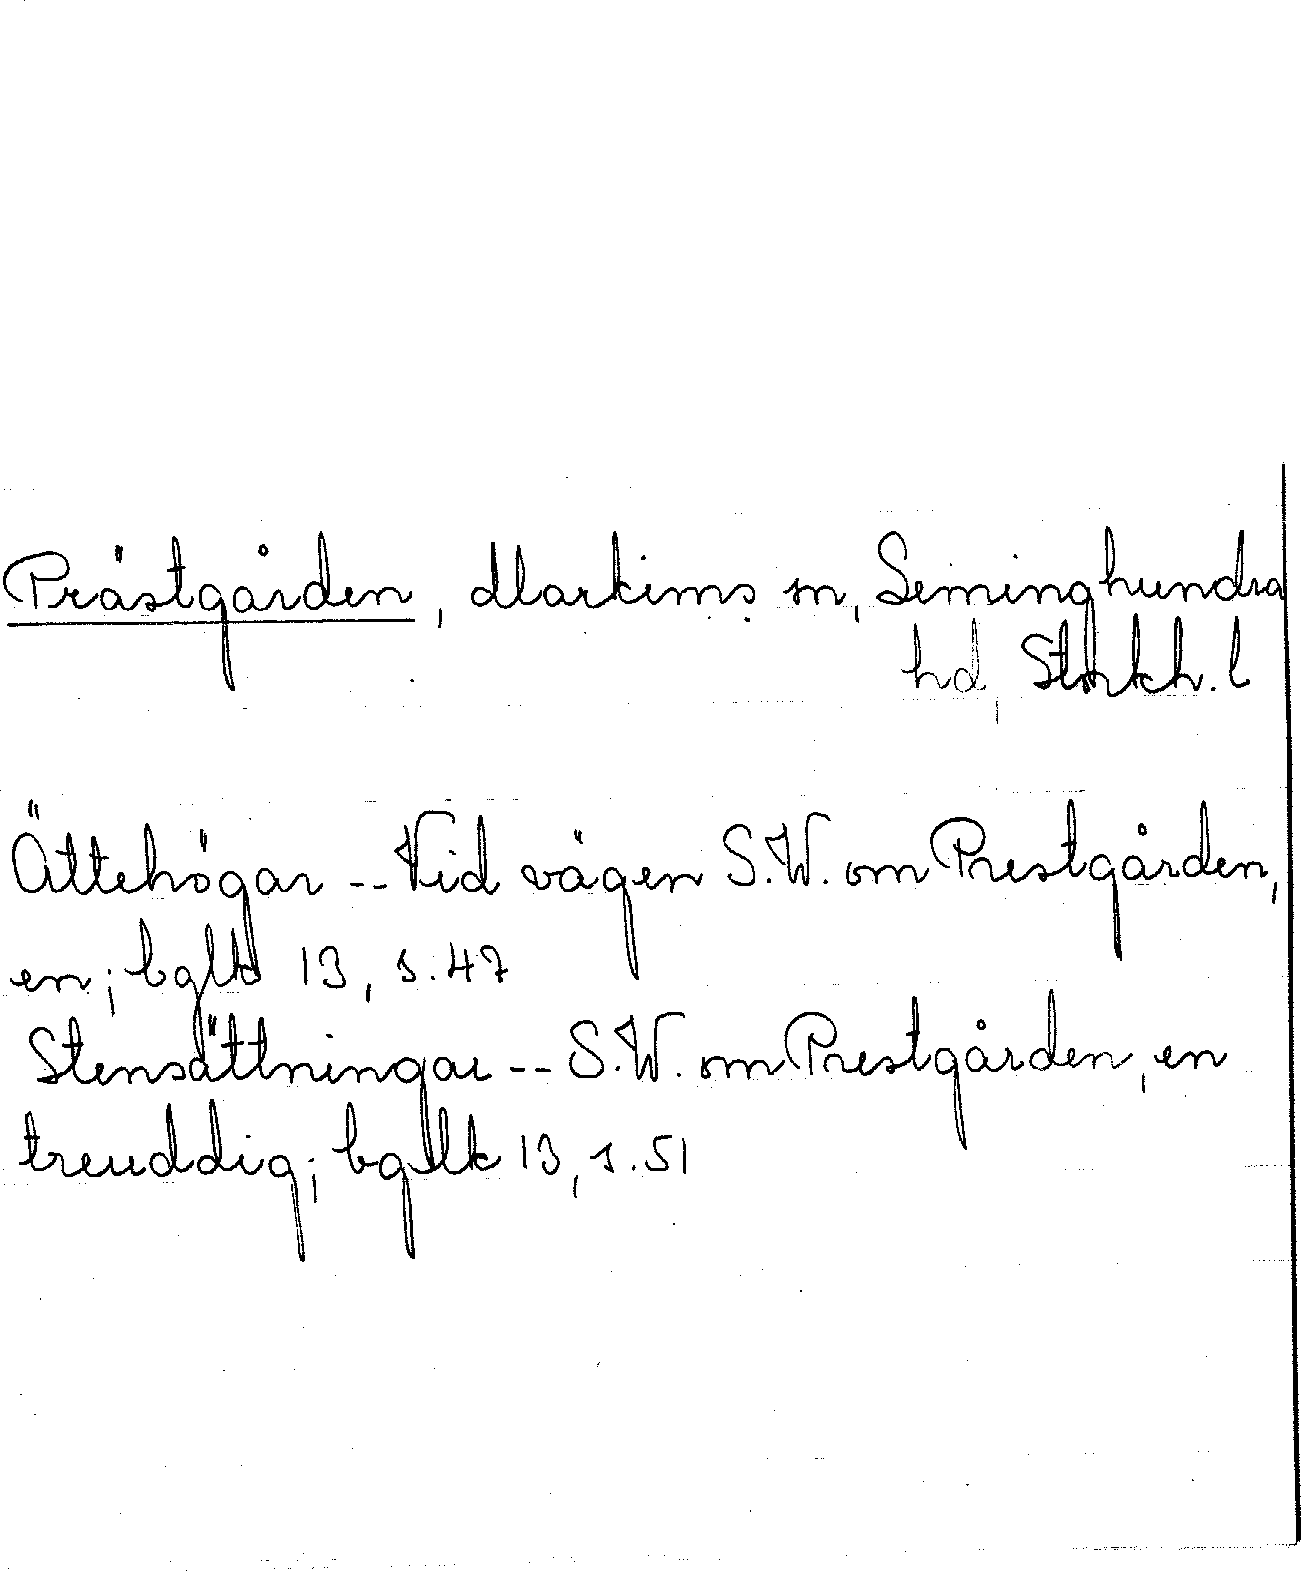 Prästgården, Markims sn, Seminghundra
hd, Stockh. l
Ättehögar -- Vid vägen S.W. om Prestgården,
en; bglk 13, s. 47
Stensättningar -- S.W. om Prestgården, en
treuddig; bglk 13, s. 51